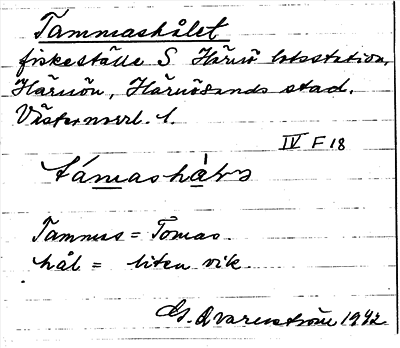 Tammashålet
fiskeställe S. Härnö lotsstation,
Härnön, Härnösands stad.
Västernorrl. l.
IV F 18
Tammas = Tomas.
hål = liten vik.
G. Qvarnström 1942